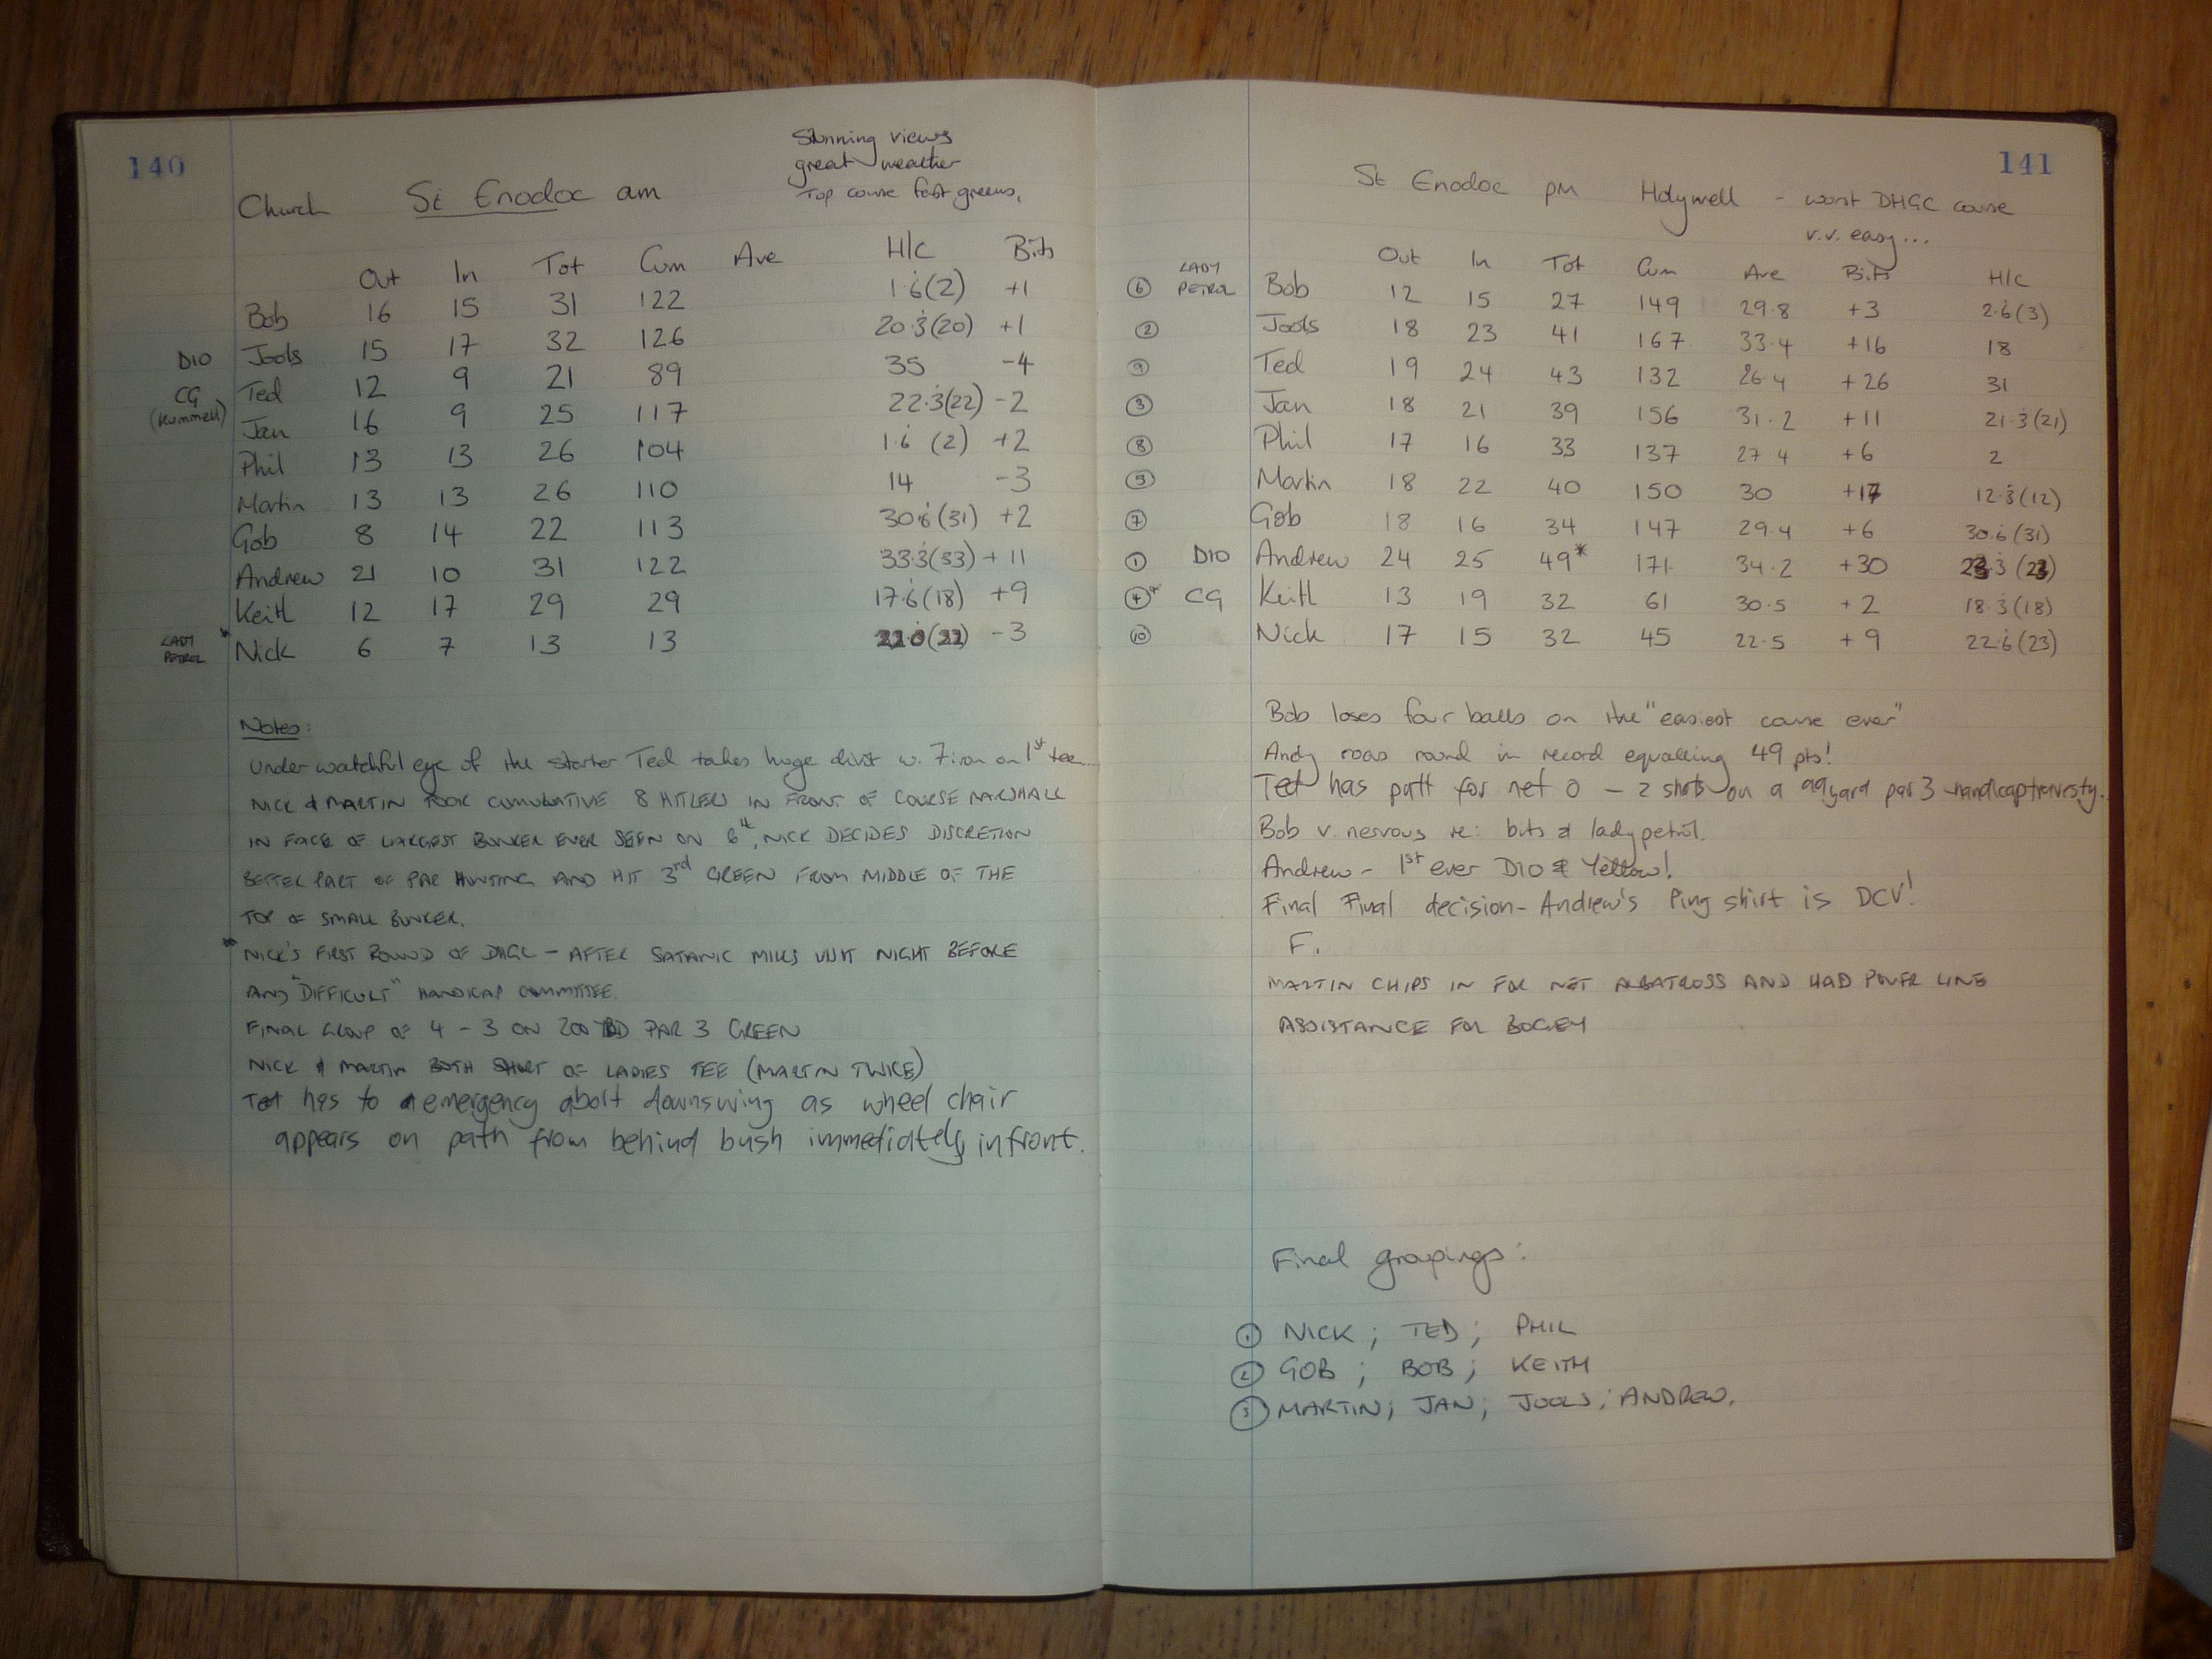 140
Stunning views
great weather
Top course fast greens,
Church St Enodoc am
Out In Tot Cum Ave H/C Bits
Bob 16 15 31 122 1.6(2) +1
DIO Jools 15 17 32 126 20.3(20) +1
CG Ted 12 9 21 89 35 -4
(Kummell) Jan 16 9 25 117 22.3(22) -2
Phil 13 13 26 104 1.6 (2) +2
Martin 13 13 26 110 14 -3
Gob 8 14 22 113 30.6(31) +2
Andrew 21 10 31 122 33.3(33) +11
Keith 12 17 29 29 17.6(18) +9
LADY PETROL * Nick 6 7 13 13 -3
Notes:
Under watchful eye of the starter Ted takes huge divot w. 7 iron on 1st tee...
NICK & MARTIN TOOK CUMULATIVE 8 HITLERS IN FRONT OF COURSE MARSHALL
IN FACE OF LARGEST BUNKER EVER SEEN ON 6th, NICK DECIDES DISCRETION
BETTER PART OF PAR HUNTING AND HIT 3rd GREEN FROM MIDDLE OF THE
TOP OF SMALL BUNKER.
* NICK'S FIRST ROUND OF DHGC - AFTER SATANIC MILLS VISIT NIGHT BEFORE
AND "DIFFICULT" HANDICAP COMMITTEE.
FINAL GROUP OF 4 - 3 ON 200 YD PAR 3 GREEN
NICK & MARTIN BOTH SHORT OF LADIES TEE (MARTIN TWICE)
Tet has to emergency abort downswing as wheel chair
appears on path from behind bush immediately infront.
141
St Enodoc pm Holywell - worst DHGC course
v.v. easy...
Out In Tot Cum Ave Bits H/C
⑥ LADY PETROL Bob 12 15 27 149 29.8 +3 2.6(3)
② Jools 18 23 41 167 33.4 +16 18
⑨ Ted 19 24 43 132 26.4 +26 31
③ Jan 18 21 39 156 31.2 +11 21.3(21)
⑧ Phil 17 16 33 137 27.4 +6 2
⑤ Martin 18 22 40 150 30 +17 12.3(12)
⑦ Gob 18 16 34 147 29.4 +6 30.6(31)
① DIO Andrew 24 25 49* 171 34.2 +30 23.3 (23)
④* CG Keith 13 19 32 61 30.5 +2 18.3(18)
⑩ Nick 17 15 32 45 22.5 +9 22.6(23)
Bob loses four balls on the "easiest course ever"
Andy roars round in record equalling 49 pts!
Tet has putt for net 0 - 2 shots on a 99yard par 3 - handicap travesty.
Bob v. nervous re: bits & lady petrol.
Andrew - 1st ever DIO & Yellow!
Final Final decision - Andrew's Ping shirt is DCV!
F.
MARTIN CHIPS IN FOR NET ALBATROSS AND HAD POWER LINE
ASSISTANCE FOR BOGEY
Final groupings:
① NICK; TED; PHIL
② GOB; BOB; KEITH
③ MARTIN; JAN; JOOLS; ANDREW.